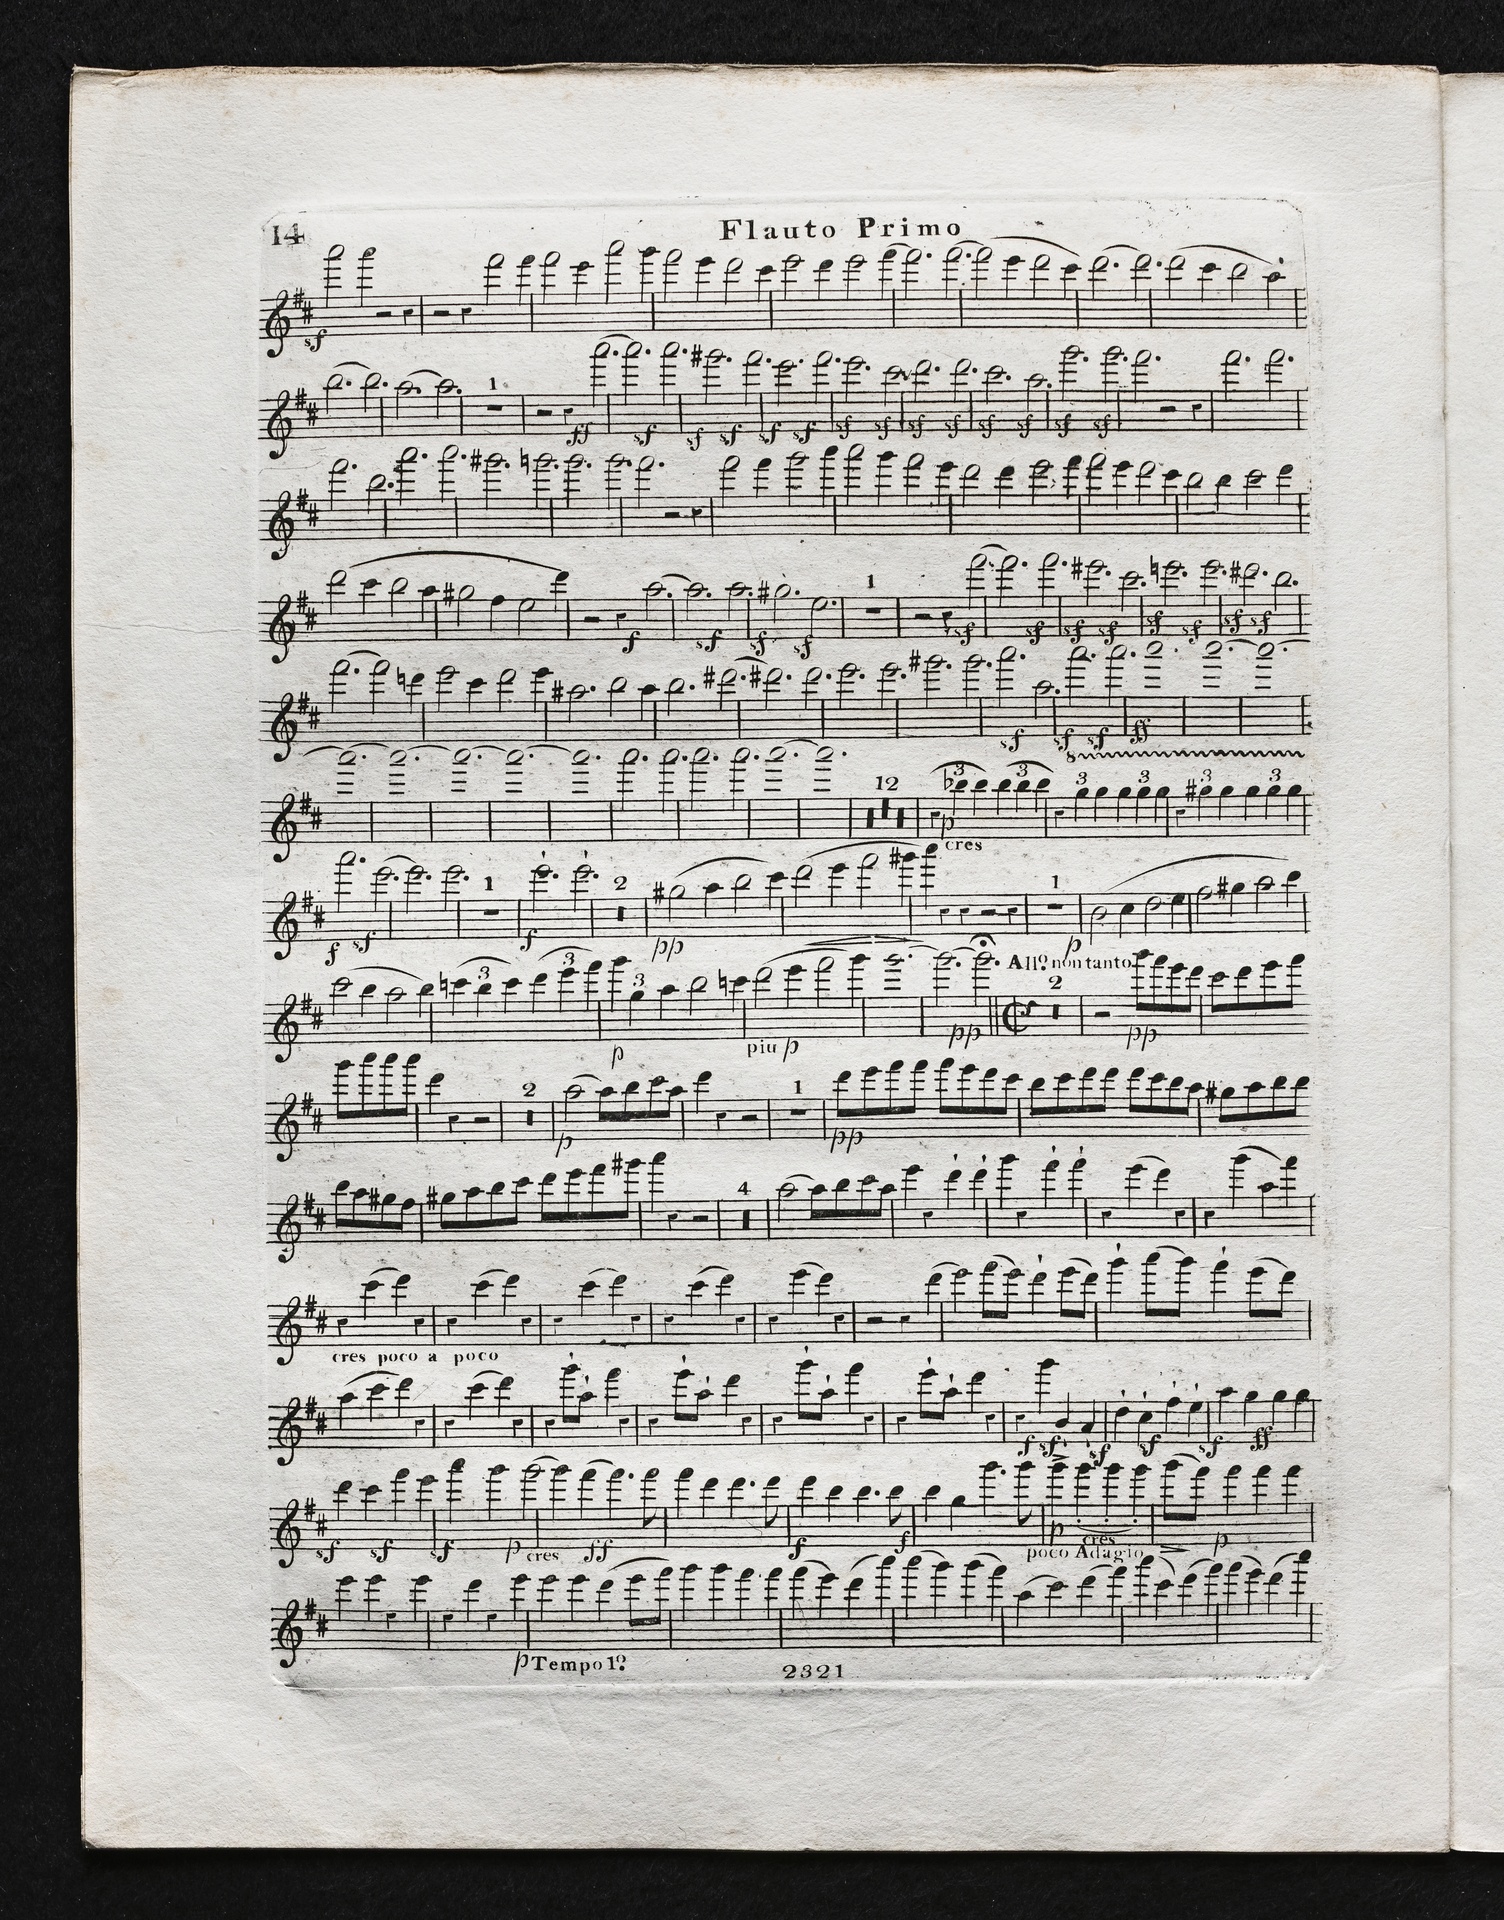 14
Flauto Primo
sf
1
ff sf sf sf sf sf sf sf sf sf sf sf sf sf
f sf sf sf 1 sf sf sf sf sf sf sf sf
sf sf sf ff
12 3 3 3 3 3 3
p
cres
f sf 1 f 2 pp 1 p
3 3 3 p piu p pp All.º non tanto 2 pp
2 p 1 pp
4
cres poco a poco
f sf sf sf sf ff
sf sf sf p cres ff f f p cres p
poco Adagio
p Tempo 1.º
2321